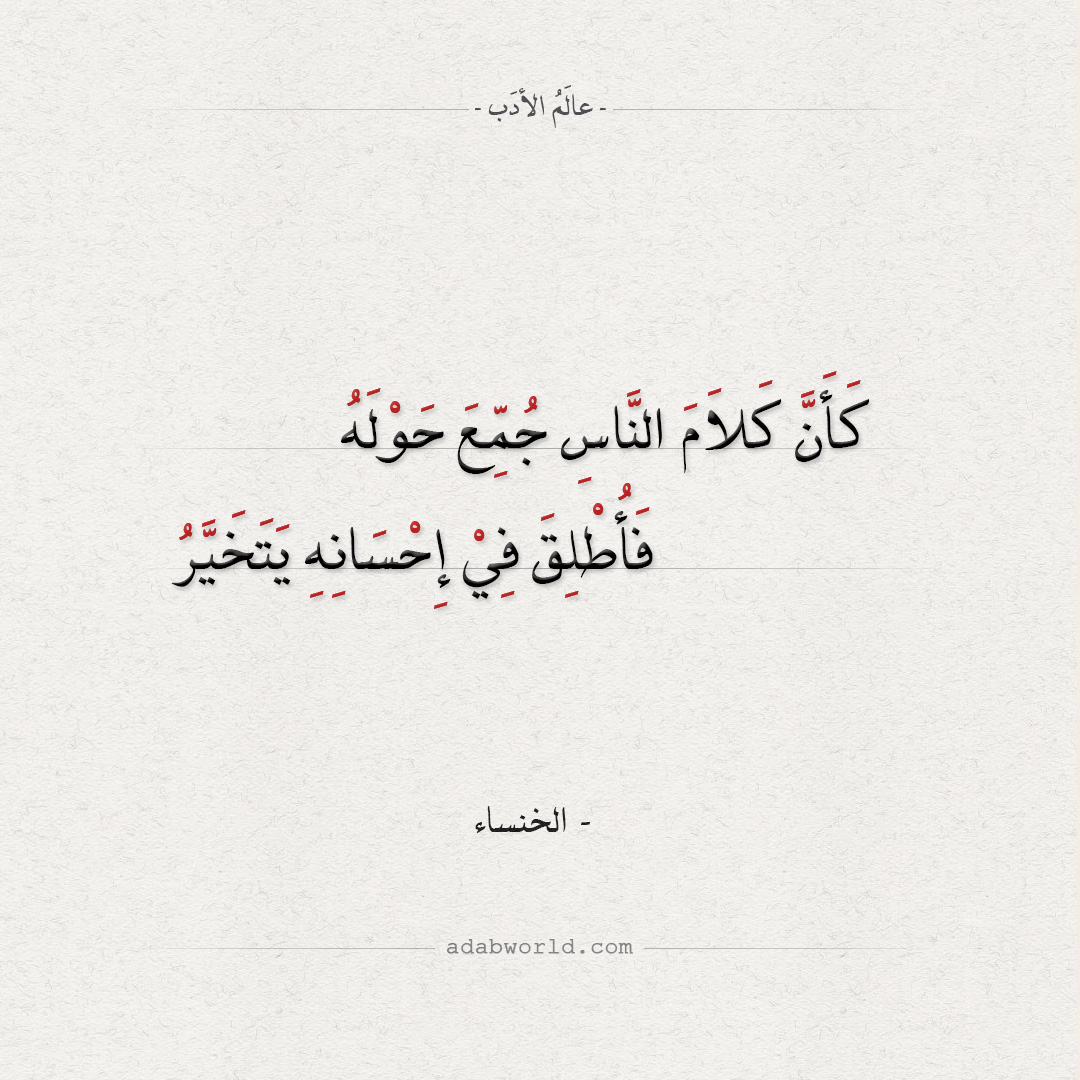 - عالَمُ الأدَب -
كَأَنَّ كَلاَمَ النَّاسِ جُمِّعَ حَوْلَهُ
فَأُطْلِقَ فِيْ إِحْسَانِهِ يَتَخَيَّرُ
- الخنساء
adabworld.com